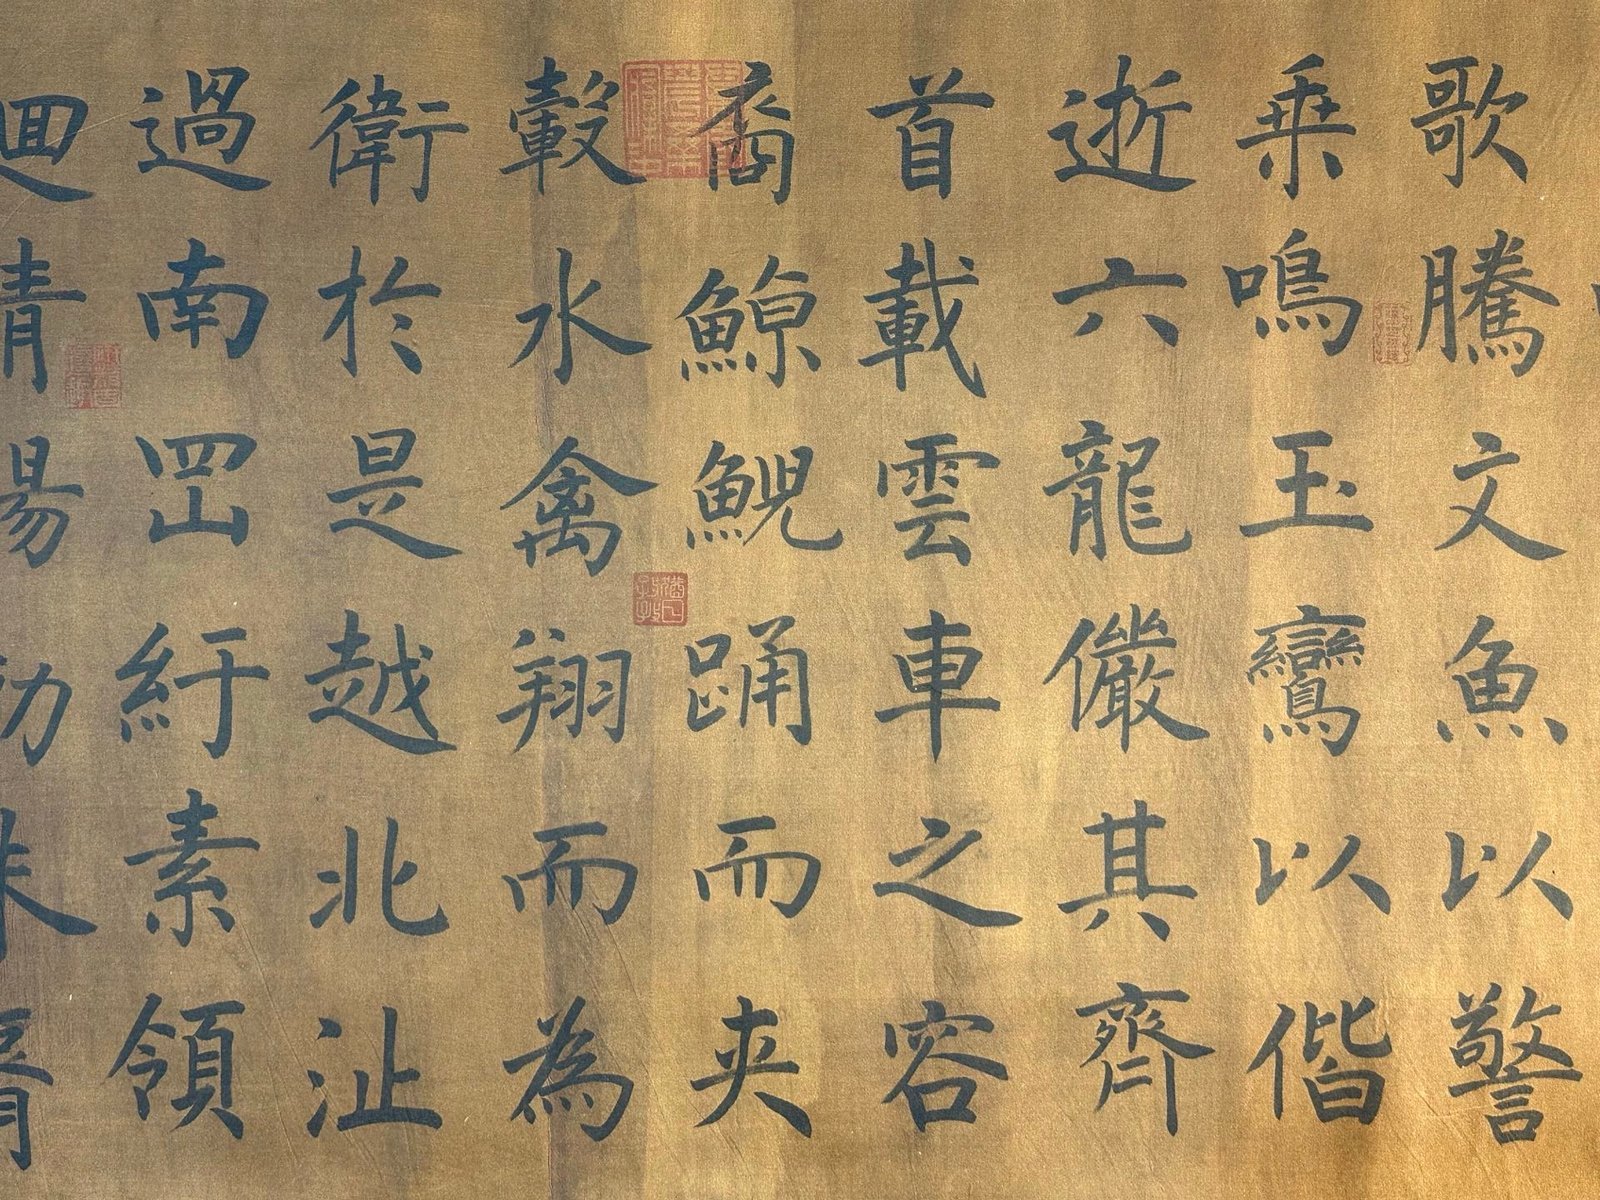 歌騰文魚以警
乗鳴玉鸞以偕
逝六龍儼其齊
首載雲車之容
裔鯨鯢踊而夾
轂水禽翔而為
衛於是越北沚
過南岡紆素領
迴清動朱脣